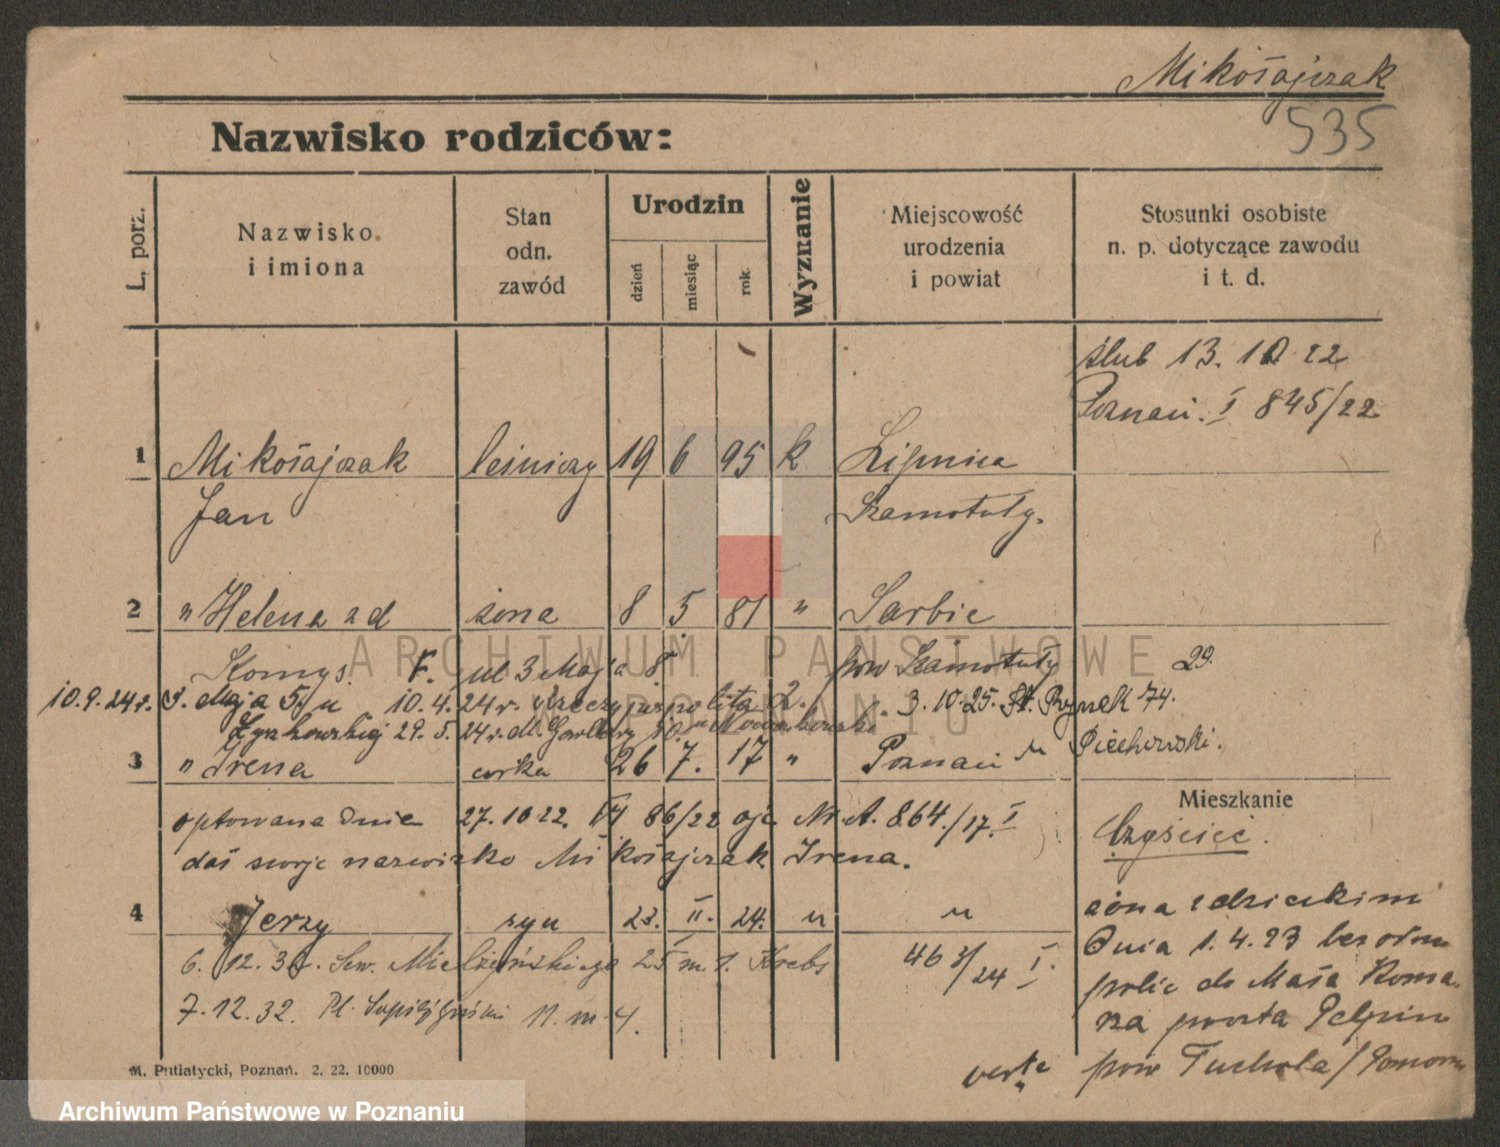 Mikołajczak
535
Nazwisko rodziców:
L. porz.
Nazwisko i imiona
Stan odn. zawód
Urodzin
dzień miesiąc rok
Wyznanie
Miejscowość urodzenia i powiat
Stosunki osobiste n. p. dotyczące zawodu i t. d.
ślub 13. 10 22
Poznań. I 845/22
1 Mikołajczak leśniczy 19 6 95 k Lipnica
Jan Szamotuły.
2 " Helena zd żona 8 5. 81 " Sarbie
Komys. ul 3 Maja 8 pow Szamotuły 29.
10.9.24 r. 3. Maja 5. u 10.4.24 r. 2. 3.10.25. St. Rynek 74.
29. 5. 24 r. u Piechowski.
3 " Irena córka 26 7. 17 " Poznań
Mieszkanie
optowana dnia 27. 10 22. VI 86/22 ojc Nr A. 864./17. I
Czyścieć.
dał swoje nazwisko Mikołajczak Irena.
4 Jerzy syn 23. II. 24. " "
żona z dzieckiem
6. 12. 30. Sew. Mielżyńskiego 25 m. 1. Krebs 463/24 I.
Dnia 1. 4. 23 bez odm
polic do Mała Koma
7. 12. 32. Pl. Sapieżyński 11. m. 4.
za poczta Pelpin
pow Tuchola / Pomorze
verte
M. Putiatycki, Poznań. 2. 22. 10000
ARCHIWUM PAŃSTWOWE
W POZNANIU
Archiwum Państwowe w Poznaniu